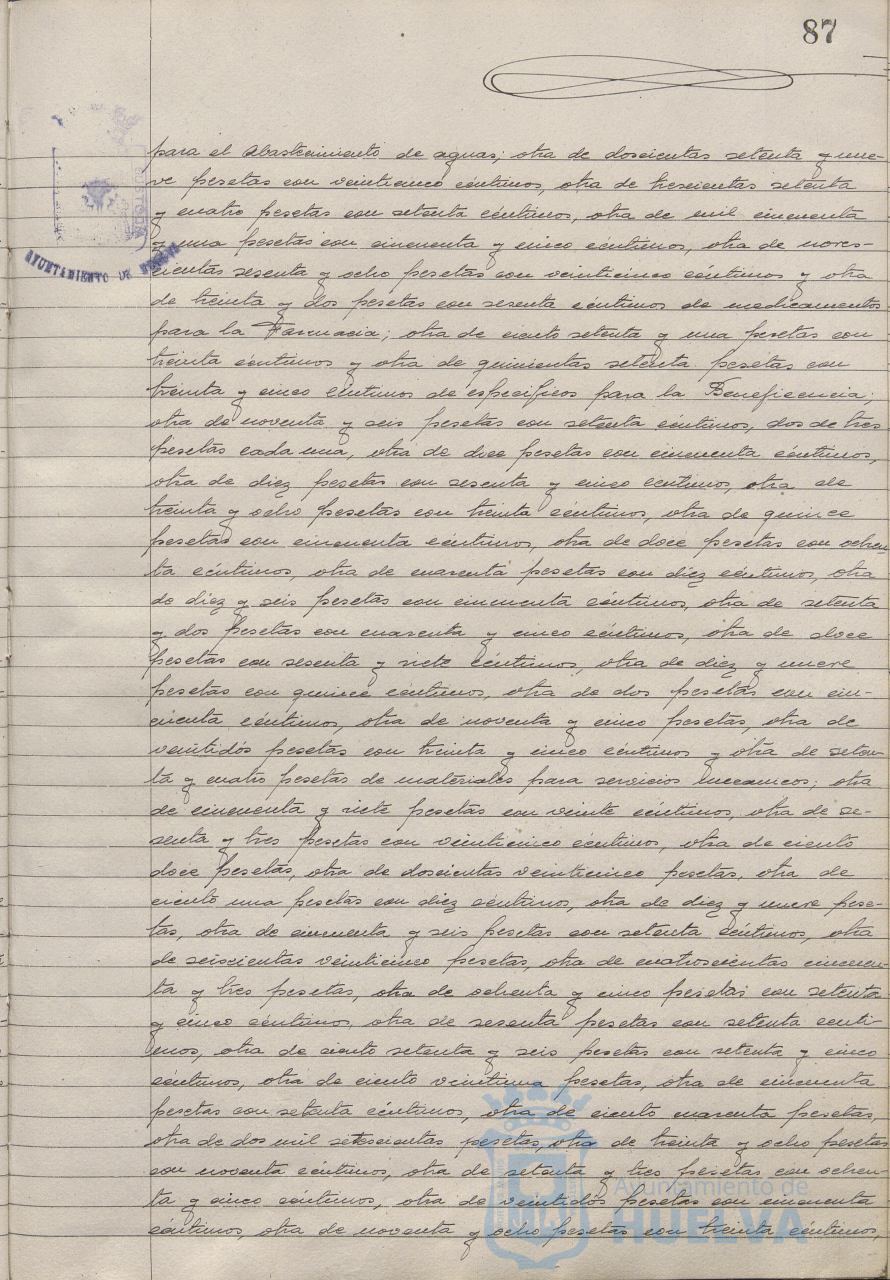 87
para el abastecimiento de aguas; otra de doscientas setenta y nue-
ve pesetas con veinticinco céntimos, otra de trescientas setenta
y cuatro pesetas con setenta céntimos, otra de mil cincuenta
y una pesetas con cincuenta y cinco céntimos, otra de noves-
cientas sesenta y ocho pesetas con veinticinco céntimos y otra
de treinta y dos pesetas con sesenta céntimos de medicamentos
para la Farmacia; otra de ciento setenta y una pesetas con
treinta céntimos y otra de quinientas setenta pesetas con
treinta y cinco céntimos de específicos para la Beneficencia;
otra de noventa y seis pesetas con setenta céntimos, dos de tres
pesetas cada una, otra de doce pesetas con cincuenta céntimos,
otra de diez pesetas con sesenta y cinco céntimos, otra de
treinta y ocho pesetas con treinta céntimos, otra de quince
pesetas con cincuenta céntimos, otra de doce pesetas con ochen-
ta céntimos, otra de cuarenta pesetas con diez céntimos, otra
de diez y seis pesetas con cincuenta céntimos, otra de setenta
y dos pesetas con cuarenta y cinco céntimos, otra de doce
pesetas con sesenta y siete céntimos, otra de diez y nueve
pesetas con quince céntimos, otra de dos pesetas con cin-
cuenta céntimos, otra de noventa y cinco pesetas, otra de
veintidós pesetas con treinta y cinco céntimos y otra de seten-
ta y cuatro pesetas de materiales para servicios mecanicos; otra
de cincuenta y siete pesetas con veinte céntimos, otra de se-
senta y tres pesetas con veinticinco céntimos, otra de ciento
doce pesetas, otra de doscientas veinticinco pesetas, otra de
ciento una pesetas con diez céntimos, otra de diez y nueve pese-
tas, otra de cincuenta y seis pesetas con setenta céntimos, otra
de seiscientas veinticinco pesetas, otra de cuatroscientas cincuen-
ta y tres pesetas, otra de ochenta y cinco pesetas con setenta
y cinco céntimos, otra de sesenta pesetas con setenta cénti-
mos, otra de ciento setenta y seis pesetas con setenta y cinco
céntimos, otra de ciento veintiuna pesetas, otra de cincuenta
pesetas con setenta céntimos, otra de ciento cuarenta pesetas,
otra de dos mil setescientas pesetas, otra de treinta y ocho pesetas
con noventa céntimos, otra de setenta y tres pesetas con ochen-
ta y cinco céntimos, otra de veintidós pesetas con cincuenta
céntimos, otra de noventa y ocho pesetas con treinta céntimos,
AYUNTAMIENTO DE HUELVA
Ayuntamiento de
HUELVA